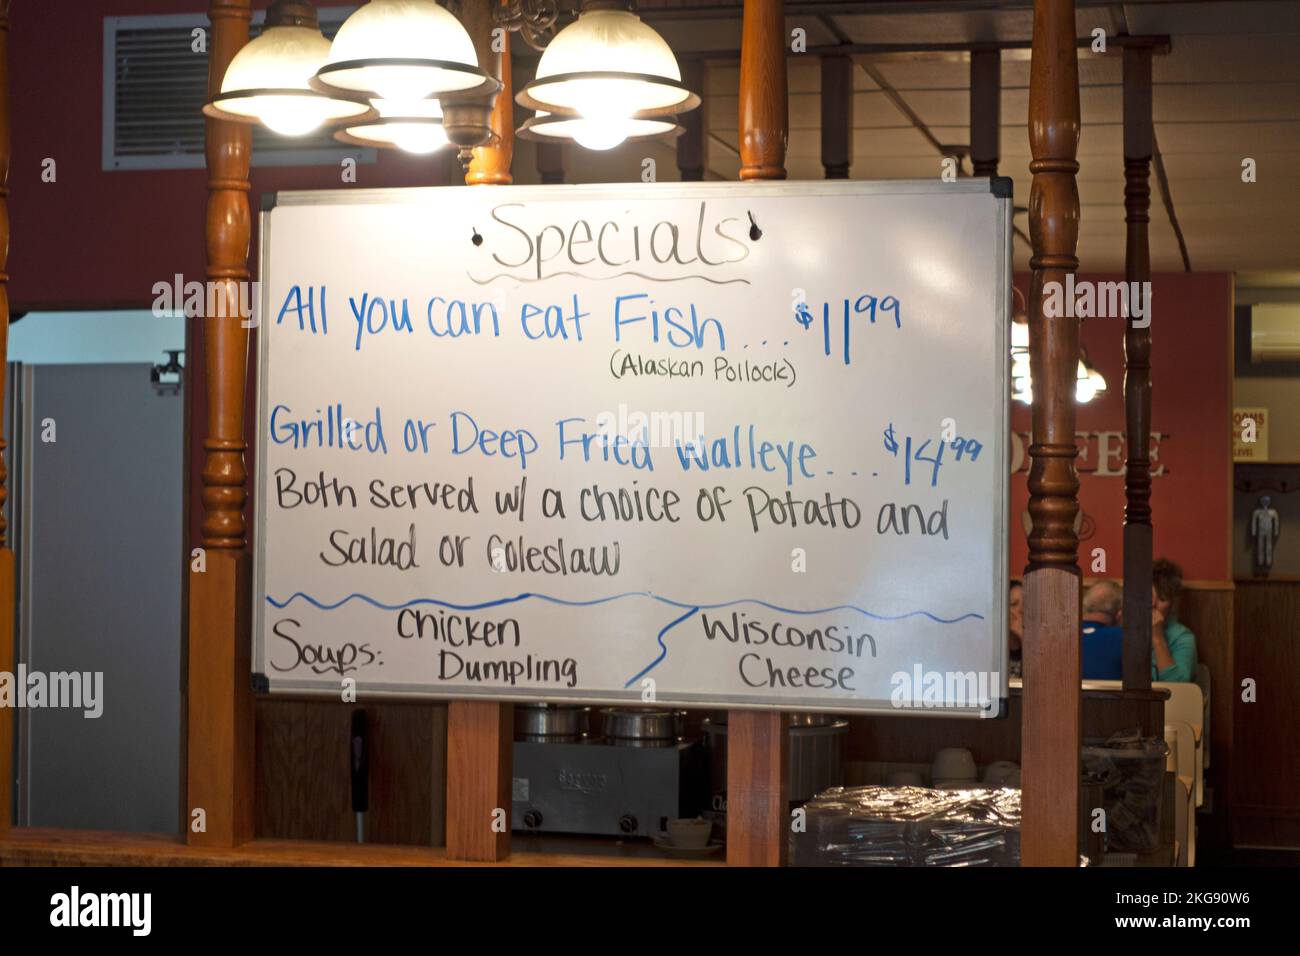 Specials
All you can eat Fish... $11.99
(Alaskan Pollock)
Grilled or Deep Fried walleye.... $14.99
Both served w/ a choice of Potato and
Salad or Coleslaw
Soups: Chicken Dumpling
Wisconsin Cheese
OFFEE
ROOMS
LEVEL
alamy
Image ID: 2KG90W6
www.alamy.com